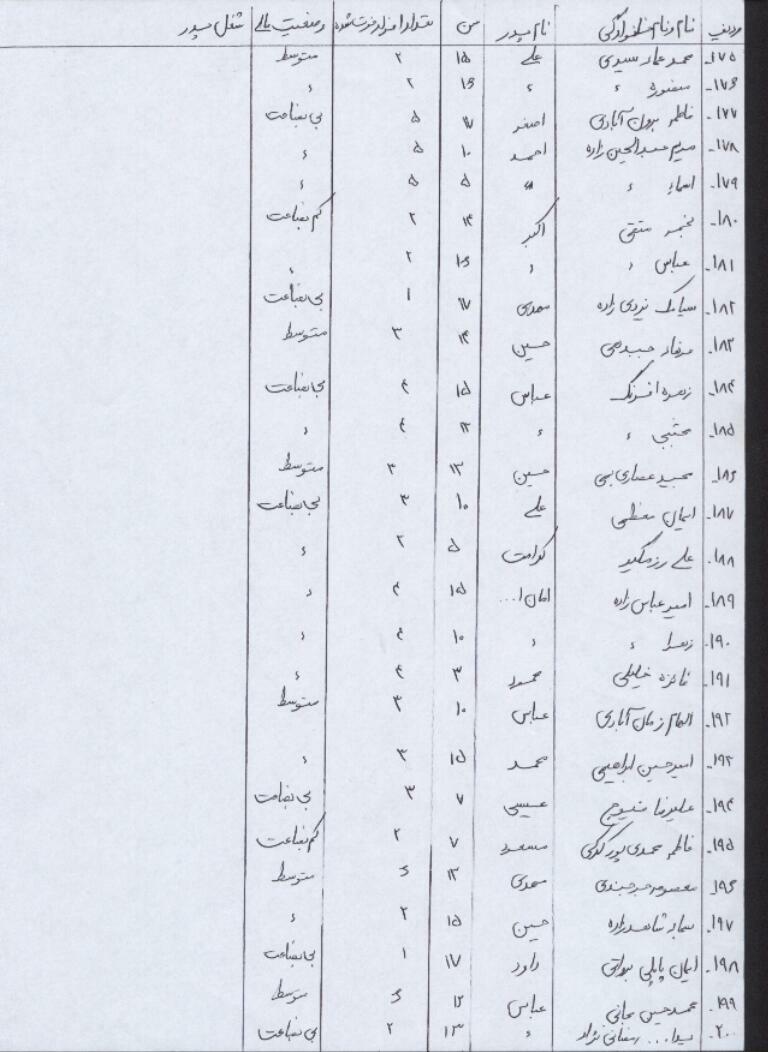 ردیف نام و نام خانوادگی نام پدر سن تعداد افراد فوت شده وضعیت مالی شغل پدر
۱۷۵- محمد سیدی علی ۱۵ ۲ متوسط
۱۷۶- ء ء ۱۶ ۲ ء
۱۷۷- فاطمه آبادی اصغر ۱۷ ۵ بی بضاعت
۱۷۸- مریم عبدالحسین زاده احمد ۱۰ ۵ ء
۱۷۹- اسماء ء ء ۵ ۵ ء
۱۸۰- نجمه متقی اکبر ۱۴ ۲ کم بضاعت
۱۸۱- عباس ء ء ۱۶ ۲ ء
۱۸۲- سیامک زاده مهدی ۱۷ ۱ بی بضاعت
۱۸۳- حسین ۱۴ ۳ متوسط
۱۸۴- زهره عباس ۱۵ ۴ بی بضاعت
۱۸۵- مجتبی ء ء ۱۲ ۴ ء
۱۸۶- حسین ۱۳ ۳ متوسط
۱۸۷- ایمان علی ۱۰ ۳ بی بضاعت
۱۸۸- علی کرامت ۵ ۲ ء
۱۸۹- امیر عباس زاده امان ا... ۱۵ ۴ ء
۱۹۰- زهرا ء ء ۱۰ ۴ ء
۱۹۱- فائزه خلیلی محمود ۳ ۴ ء
۱۹۲- الهام زمان آبادی عباس ۱۰ ۳ متوسط
۱۹۳- امیرحسین ابراهیمی محمد ۱۵ ۳ ء
۱۹۴- علیرضا عیسی ۷ ۳ بی بضاعت
۱۹۵- فاطمه محمدی پور مسعود ۷ ۲ کم بضاعت
۱۹۶- معصومه مهدی ۱۳ ۶ متوسط
۱۹۷- حسین ۱۵ ۲ ء
۱۹۸- ایمان داود ۱۷ ۱ بی بضاعت
۱۹۹- محمدحسین عباس ۱۲ ۶ متوسط
۲۰۰- ء ۱۳ ۲ بی بضاعت